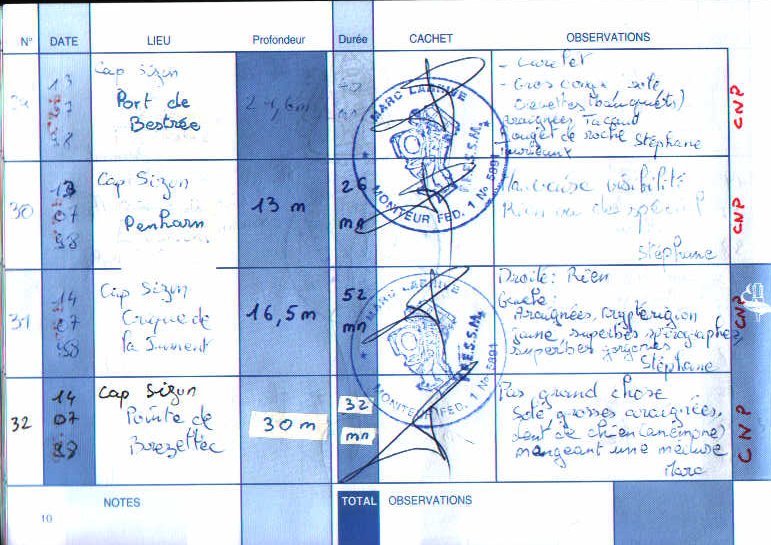 N° DATE LIEU Profondeur Durée CACHET OBSERVATIONS
13 07 98 Cap Sizun Port de Bestrée
- Gros congre, sole
Araignées Tacaud
Rouget de roche Stéphane
CNP
MARC LABRIVE
MONITEUR FED. 1 N° 5891
F.F.E.S.S.M.
30 13 07 98 Cap Sizun Penharn 13 m 26 mn
Mauvaise visibilité
Rien vu de spécial
Stéphane
CNP
31 14 07 98 Cap Sizun Crique de la Jument 16,5 m 52 mn
Droite: Rien
Gauche:
Araignées, tryptérigion
jaune superbes spirographes,
superbes gorgones
Stéphane
CNP
MARC LABRIVE
MONITEUR FED. 1 N° 5891
F.F.E.S.S.M.
32 14 07 98 Cap Sizun Pointe de Brezellec 30 m 32 mn
Pas grand chose
Sole grosses araignées,
dent de chien (anémone)
mangeant une méduse
Marc
CNP
NOTES TOTAL OBSERVATIONS
10